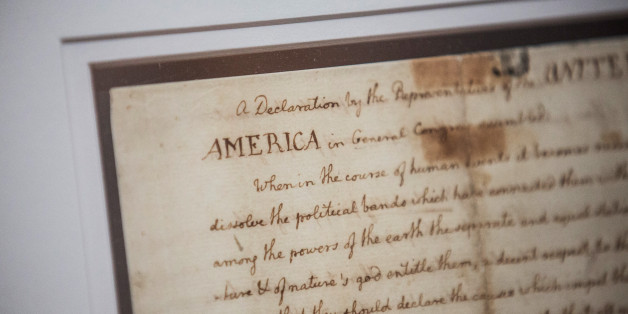 A Declaration by the Representatives of the UNITED
AMERICA in General Congress assembled.
When in the course of human events it becomes
dissolve the political bands which have connected them with
among the powers of the earth the separate and equal
ture & of nature's god entitle them, a decent respect to the
they should declare the causes which impel